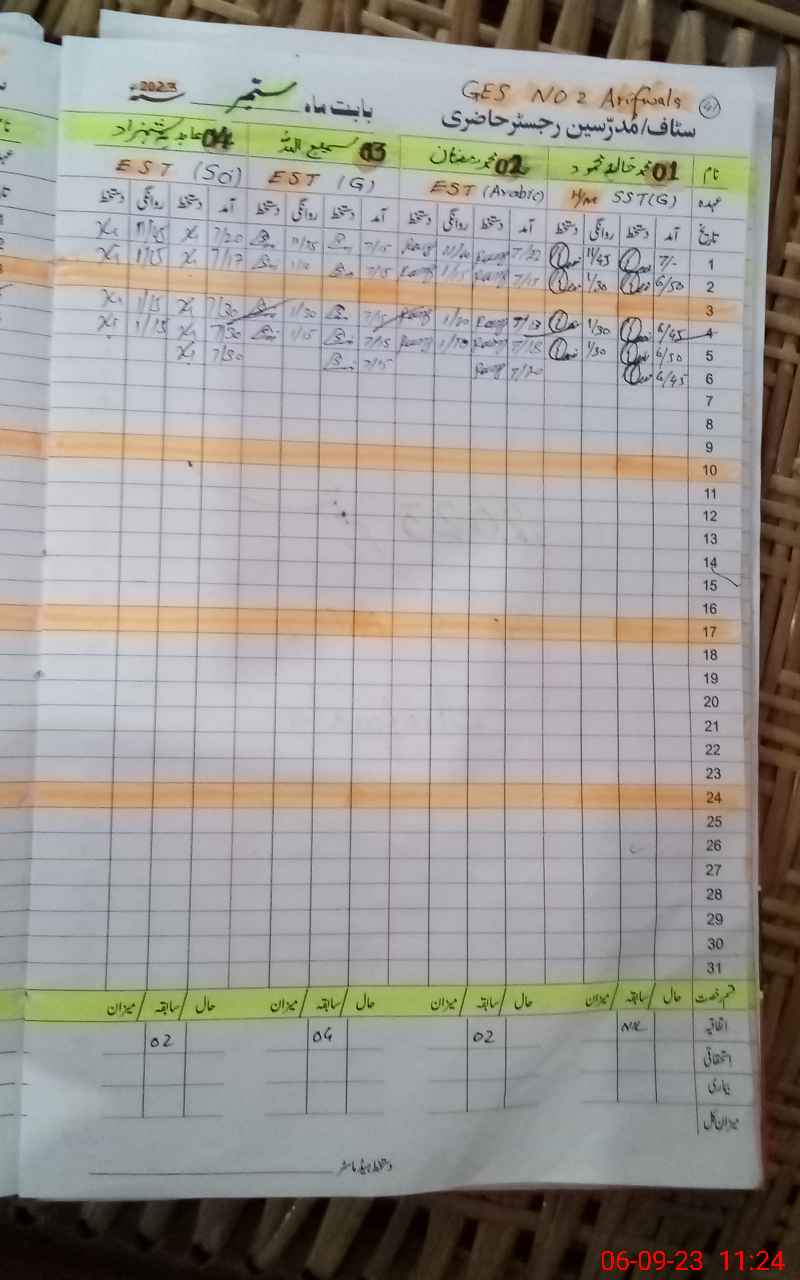 GES NO 2 Arifwala
2023 ستمبر بابت ماہ
سٹاف/مدرسین رجسٹر حاضری
نام 01 محمد خالد محمود 02 محمد رمضان 03 سمیع اللہ 04 عابد شہزاد
عہدہ H/M SST(G) EST (Arabic) EST (G) EST (Sci)
تاریخ آمد دستخط روانگی دستخط آمد دستخط روانگی دستخط آمد دستخط روانگی دستخط آمد دستخط روانگی دستخط
1 7/- 11/45 7/22 11/20 7/15 7/20 11/45
2 6/50 1/30 7/15 1/15 7/15 7/17 1/15
3
4 6/45 1/30 7/13 1/20 7/15 1/30 7/30 1/15
5 6/50 1/30 7/18 7/15 1/15 7/30 1/15
6 6/45 7/20 7/15 7/30
7
8
9
10
11
12
13
14
15
16
17
18
19
20
21
22
23
24
25
26
27
28
29
30
31
قسم رخصت حال / سابقہ / میزان حال / سابقہ / میزان حال / سابقہ / میزان حال / سابقہ / میزان
اتفاقیہ 02 04 02
استحقاقی
بیماری
میزان کل
دستخط ہیڈ ماسٹر
06-09-23 11:24